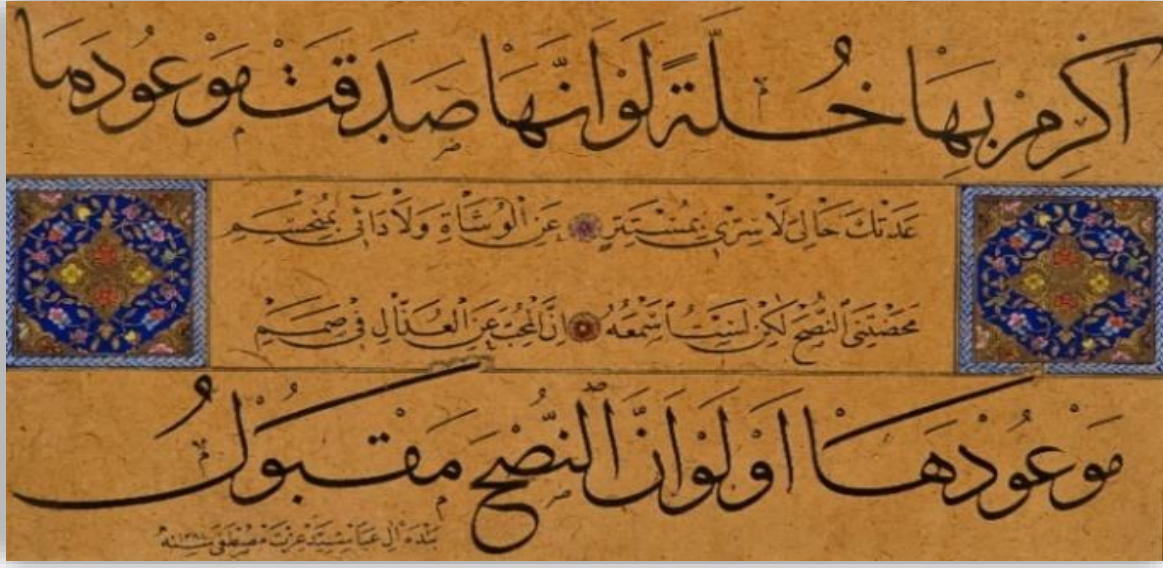 اَكْرِمْ بِهَا خُلَّةً لَوْ اَنَّهَا صَدَقَتْ مَوْعُودَهَا
عَدَتْكَ حَالِيَ لَا سِرِّى بِمُسْتَتِرٍ عَنِ الْوُشَاةِ وَلَا دَائِى بِمُنْحَسِمِ
مَحَضْتَنِى النُّصْحَ لٰكِنْ لَسْتُ اَسْمَعُهُ اِنَّ الْمُحِبَّ عَنِ الْعُذَّالِ فِى صَمَمِ
مَوْعُودَهَا اَوْ لَوْ اَنَّ النُّصْحَ مَقْبُولُ
بنده آل عبا سيد عزت مصطفى سنه